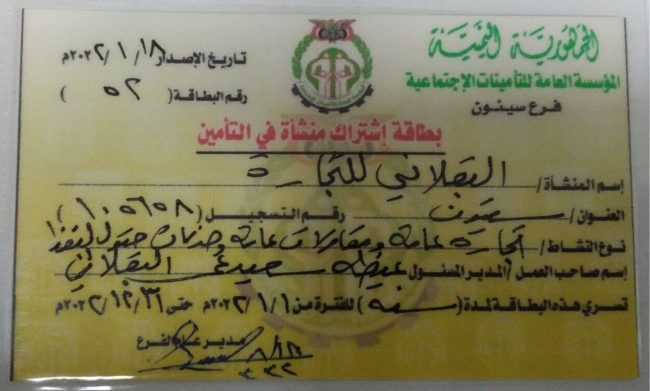 الجمهورية اليمنية
المؤسسة العامة للتأمينات الإجتماعية
فرع سيئون
تاريخ الإصدار ١٨/ ١ /٢٠٢٢م
رقم البطاقة ( ٥٢ )
بطاقة إشتراك منشأة في التأمين
إسم المنشأة / البقلاني للتجارة
العنوان / سيئون رقم التسجيل ( ١٠٥٦٥٨ )
نوع النشاط / تجارة عامة ومقاولات عامة وخدمات حقول النفط
إسم صاحب العمل / المدير المسئول سعيد البقلاني
تسري هذه البطاقة لمدة ( سنه ) للفترة من ١ / ١ /٢٠٢٢م حتى ٣١ / ١٢ /٢٠٢٢م
مدير عام الفرع